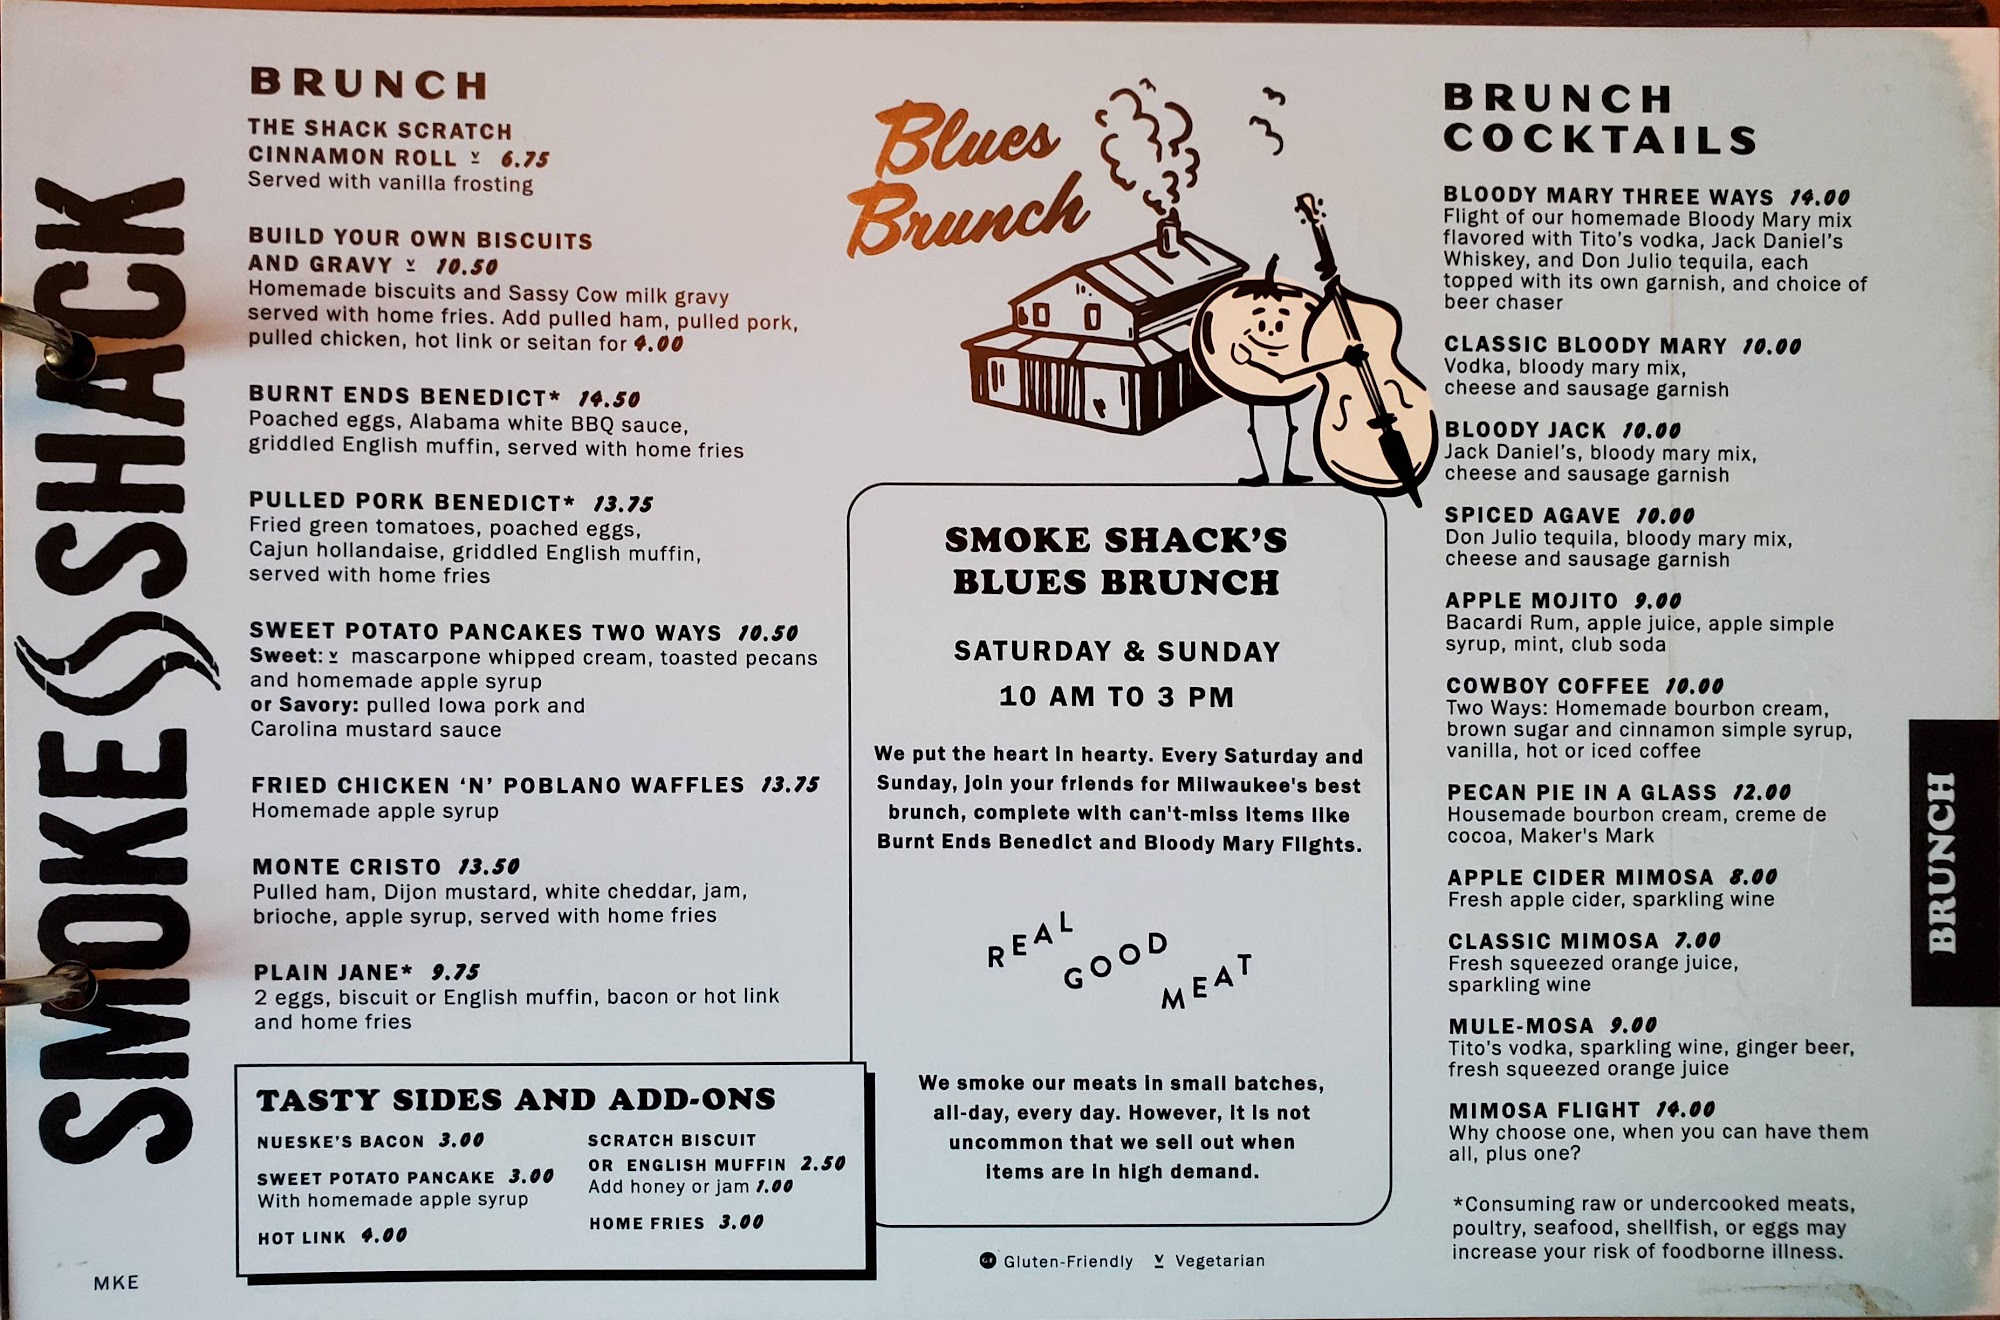 SMOKE SHACK
BRUNCH
THE SHACK SCRATCH
CINNAMON ROLL V 6.75
Served with vanilla frosting
BUILD YOUR OWN BISCUITS
AND GRAVY V 10.50
Homemade biscuits and Sassy Cow milk gravy
served with home fries. Add pulled ham, pulled pork,
pulled chicken, hot link or seitan for 4.00
BURNT ENDS BENEDICT* 14.50
Poached eggs, Alabama white BBQ sauce,
griddled English muffin, served with home fries
PULLED PORK BENEDICT* 13.75
Fried green tomatoes, poached eggs,
Cajun hollandaise, griddled English muffin,
served with home fries
SWEET POTATO PANCAKES TWO WAYS 10.50
Sweet: V mascarpone whipped cream, toasted pecans
and homemade apple syrup
or Savory: pulled Iowa pork and
Carolina mustard sauce
FRIED CHICKEN ‘N’ POBLANO WAFFLES 13.75
Homemade apple syrup
MONTE CRISTO 13.50
Pulled ham, Dijon mustard, white cheddar, jam,
brioche, apple syrup, served with home fries
PLAIN JANE* 9.75
2 eggs, biscuit or English muffin, bacon or hot link
and home fries
TASTY SIDES AND ADD-ONS
NUESKE'S BACON 3.00
SWEET POTATO PANCAKE 3.00
With homemade apple syrup
HOT LINK 4.00
SCRATCH BISCUIT
OR ENGLISH MUFFIN 2.50
Add honey or jam 1.00
HOME FRIES 3.00
MKE
Blues
Brunch
SMOKE SHACK'S
BLUES BRUNCH
SATURDAY & SUNDAY
10 AM TO 3 PM
We put the heart in hearty. Every Saturday and
Sunday, join your friends for Milwaukee's best
brunch, complete with can't-miss items like
Burnt Ends Benedict and Bloody Mary Flights.
REAL
GOOD
MEAT
We smoke our meats in small batches,
all-day, every day. However, it is not
uncommon that we sell out when
items are in high demand.
GF Gluten-Friendly V Vegetarian
BRUNCH
COCKTAILS
BLOODY MARY THREE WAYS 14.00
Flight of our homemade Bloody Mary mix
flavored with Tito's vodka, Jack Daniel's
Whiskey, and Don Julio tequila, each
topped with its own garnish, and choice of
beer chaser
CLASSIC BLOODY MARY 10.00
Vodka, bloody mary mix,
cheese and sausage garnish
BLOODY JACK 10.00
Jack Daniel's, bloody mary mix,
cheese and sausage garnish
SPICED AGAVE 10.00
Don Julio tequila, bloody mary mix,
cheese and sausage garnish
APPLE MOJITO 9.00
Bacardi Rum, apple juice, apple simple
syrup, mint, club soda
COWBOY COFFEE 10.00
Two Ways: Homemade bourbon cream,
brown sugar and cinnamon simple syrup,
vanilla, hot or iced coffee
PECAN PIE IN A GLASS 12.00
Housemade bourbon cream, creme de
cocoa, Maker's Mark
APPLE CIDER MIMOSA 8.00
Fresh apple cider, sparkling wine
CLASSIC MIMOSA 7.00
Fresh squeezed orange juice,
sparkling wine
MULE-MOSA 9.00
Tito's vodka, sparkling wine, ginger beer,
fresh squeezed orange juice
MIMOSA FLIGHT 14.00
Why choose one, when you can have them
all, plus one?
*Consuming raw or undercooked meats,
poultry, seafood, shellfish, or eggs may
increase your risk of foodborne illness.
BRUNCH